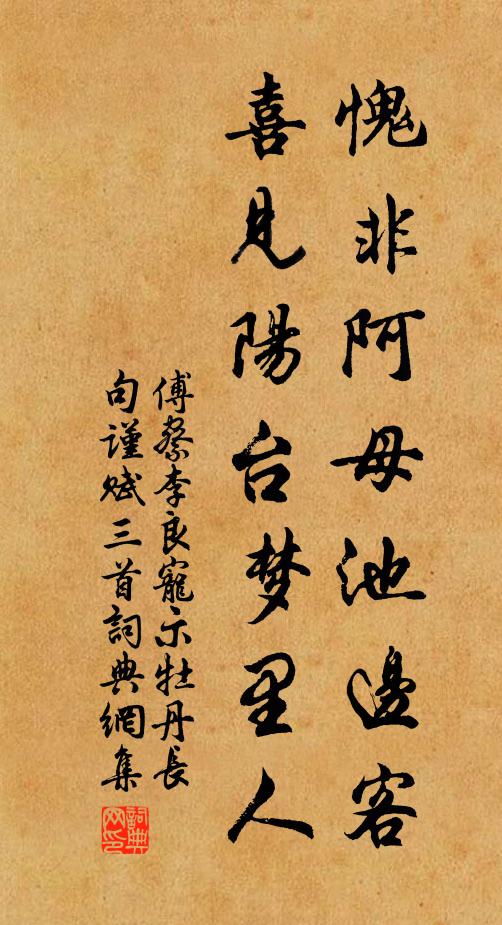 愧非阿母池邊客
喜見陽台梦里人
傅察李良寵示牡丹長
句謹赋三首詞典網集
詞典网印